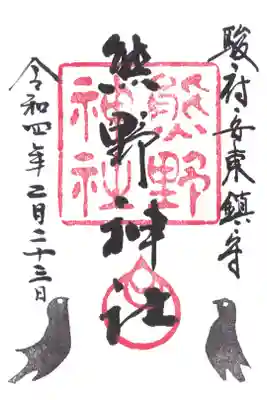 駿府安東鎮守
熊野神社
熊野
神社
令和四年二月二十三日